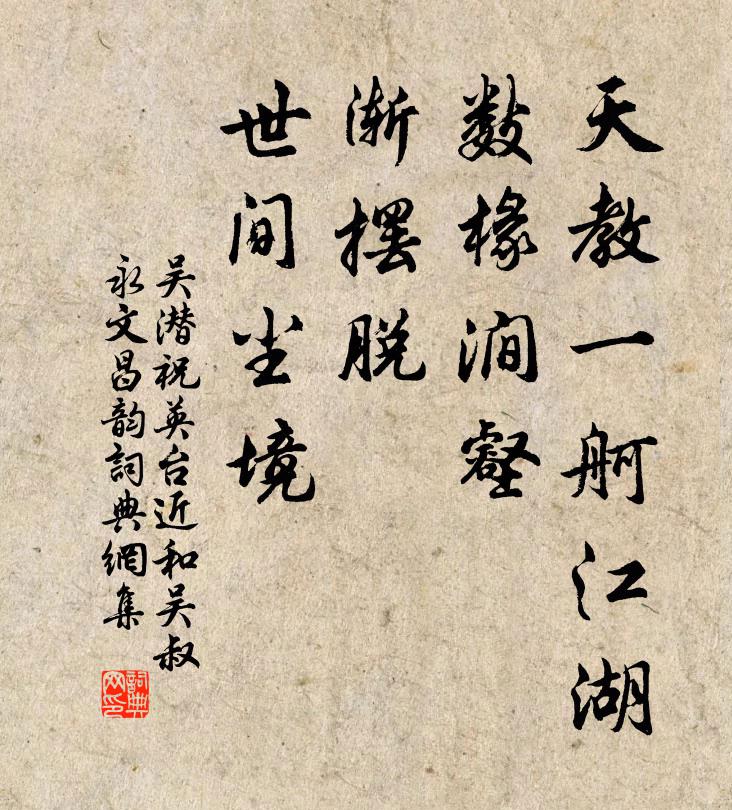 天教一舸江湖
数椽涧壑
渐摆脱
世间尘境
吴潜祝英台近和吴叔
永文昌韵詞典網集
詞典
网印